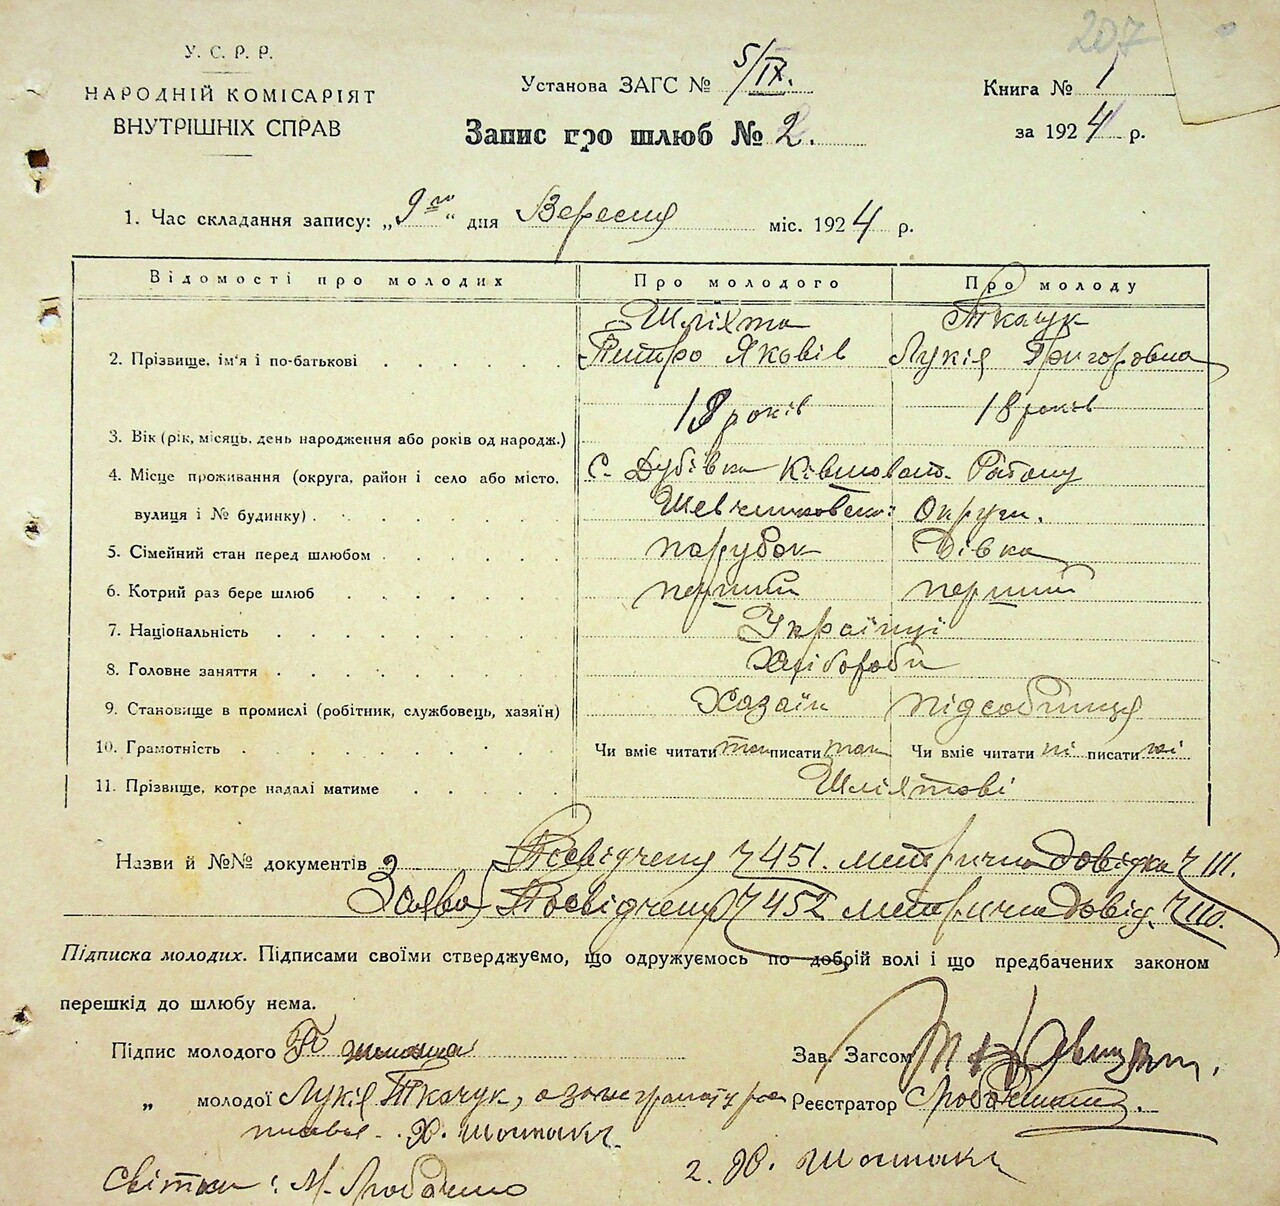 207
У. С. Р. Р.
НАРОДНІЙ КОМІСАРІЯТ
ВНУТРІШНІХ СПРАВ
Установа ЗАГС № 5/IX.
Книга № 1
Запис про шлюб № 2.
за 1924 р.
1. Час складання запису: „9го“ дня Вересня міс. 1924 р.
Відомості про молодих Про молодого Про молоду
Шляхта Ткачук
2. Прізвище, ім'я і по-батькові Петро Яковів Лукія Григоровна
18 років 18 років
3. Вік (рік, місяць, день народження або років од народж.)
4. Місце проживання (округа, район і село або місто, с. Дубівка Району
вулиця і № будинку). Шевченковської Округи.
5. Сімейний стан перед шлюбом парубок Дівка
6. Котрий раз бере шлюб перший перший
7. Національність Українці
8. Головне заняття Хлібороби
9. Становище в промислі (робітник, службовець, хазяїн) Хазяїн підсобниця
10. Грамотність Чи вміє читати так писати так Чи вміє читати ні писати ні
11. Прізвище, котре надалі матиме Шляхтові
Назви й №№ документів 2 Посвідчення № 451. метрична довідка № 111.
Заява, Посвідчення № 452 метрична довід. № 110.
Підписка молодих. Підписами своїми стверджуємо, що одружуємось по добрій волі і що предбачених законом
перешкід до шлюбу нема.
Підпис молодого П Шляхта Зав. Загсом
„ молодої Лукія Ткачук, а за неграмотну рос Реєстратор
писався
Світки: М.
2.